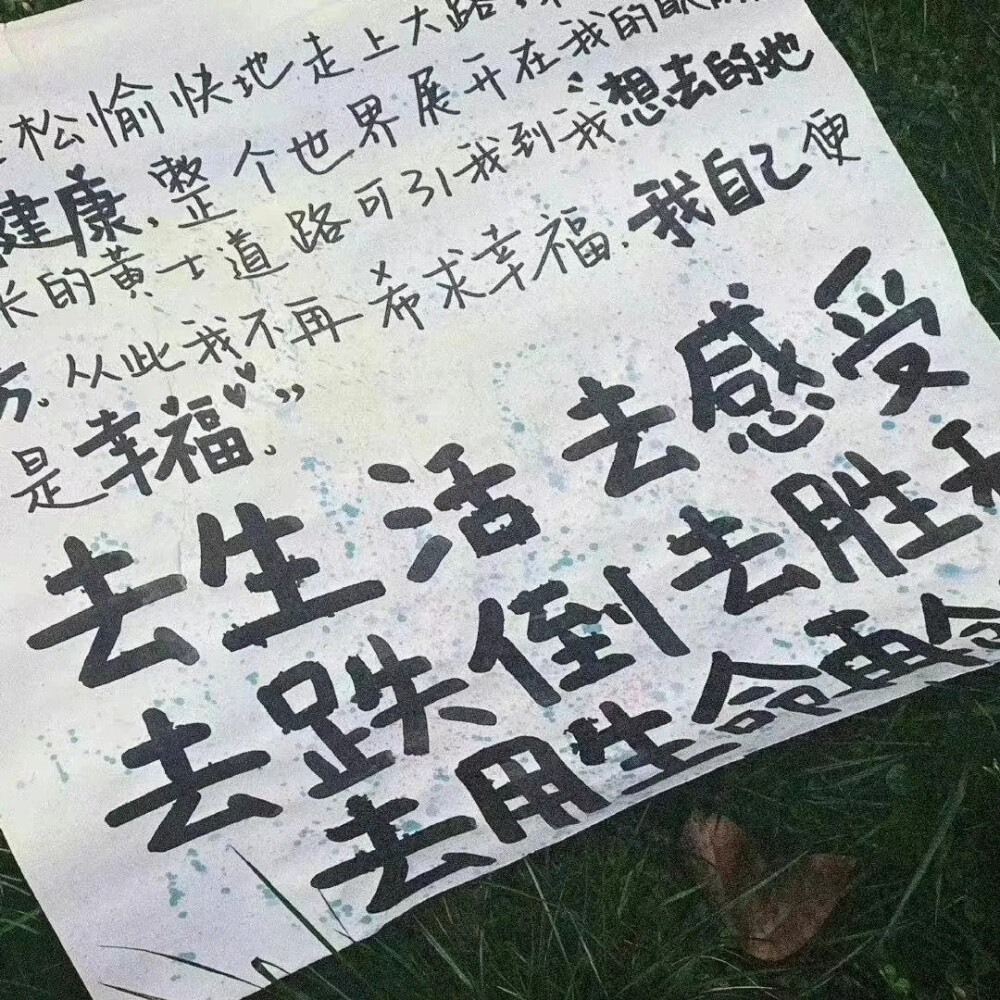 松愉快地走上大路,
健康,整个世界展开在我的眼
长的黄土道路可引我到我想去的地
方.从此我不再希求幸福.我自己便
是幸福."
去生活 去感受
去跌倒去胜利
去用生命再